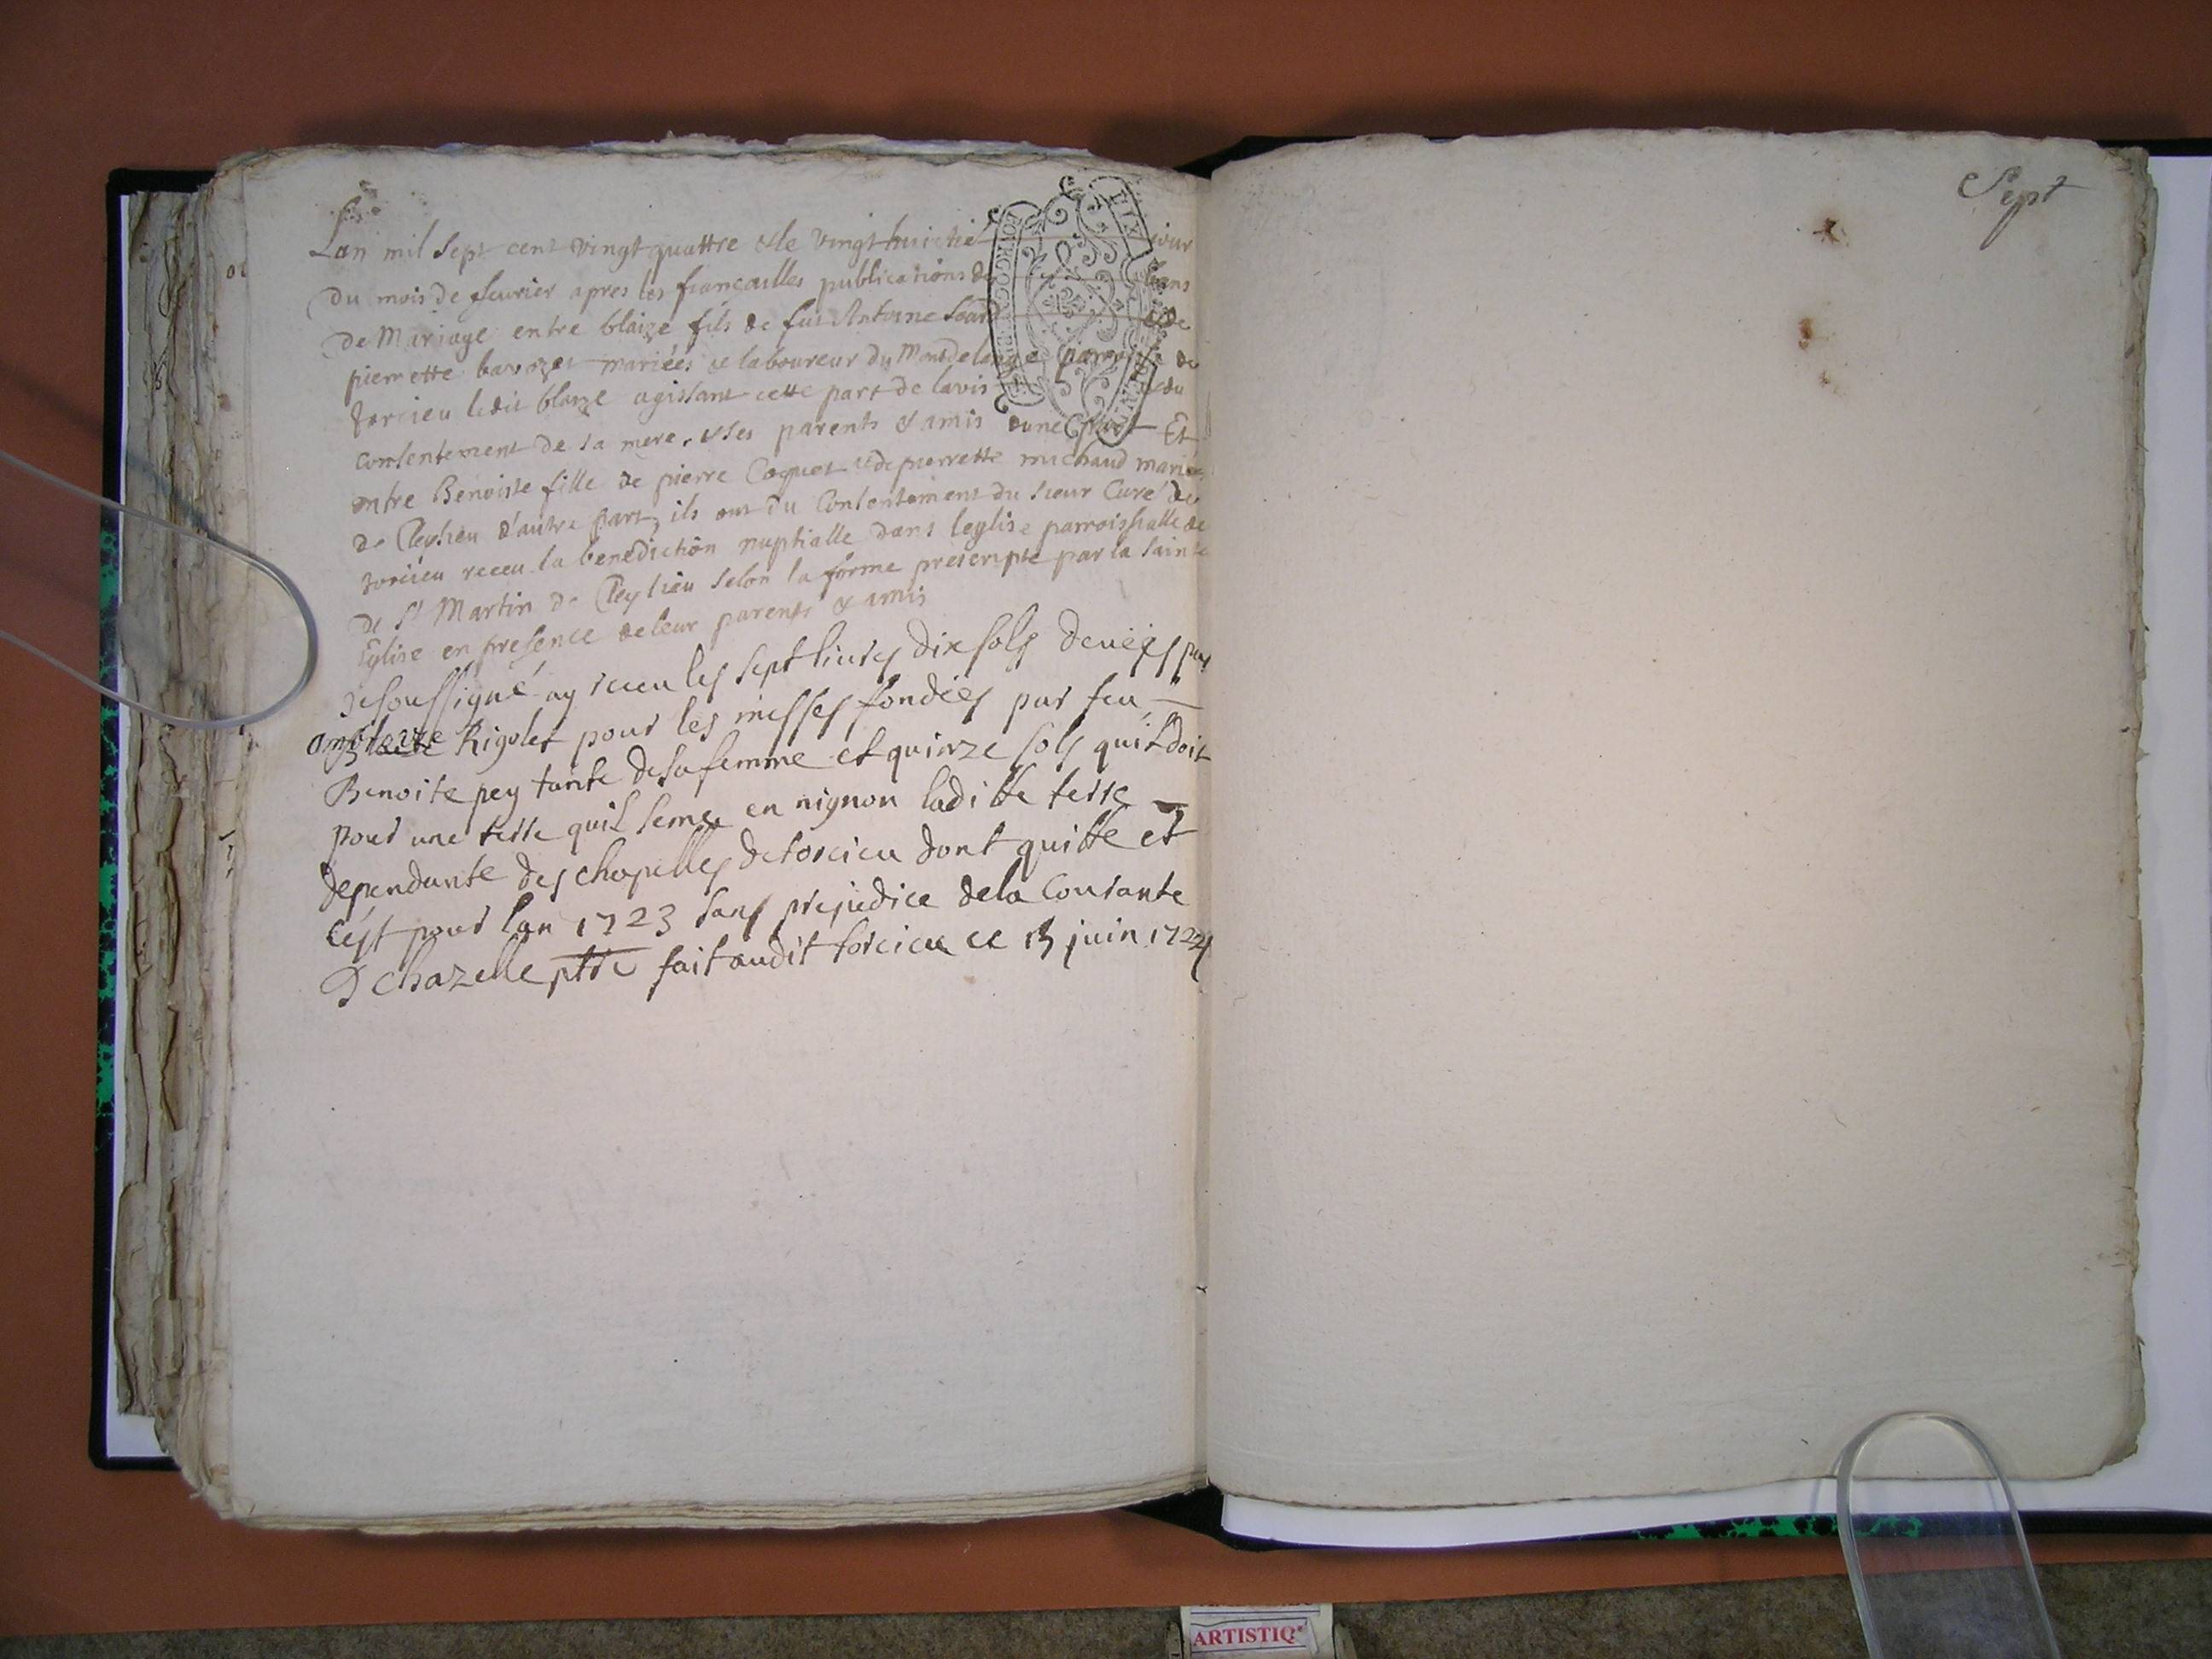 Lan mil sept cent vingt quattre & le vingt huictie jour
du mois de feurier apres les fiancailles publications de bans
de Mariage entre blaize fils de fut Antoine & de
pierrette mariées & laboureur du parroisse de
torcieu ledit blaize agissant cette part de lavis & du
consentement de sa mere, & ses parents & amis dune part Et
entre Benoiste fille de pierre Coquet & de pierrette michaud mariés
de Cleyzieu d'autre part, ils ont du Consentement du sieur Curé de
torcieu receu la benediction nuptialle dans leglise parroissialle de
de St Martin de Cleyzieu selon la forme prescripte par la Sainte
Eglise en presence de leur parents & amis
Je soussigné ay receu les sept liures dix sols deuëes par
Rigolet pour les messes fondées par feu
Benoite pey tante de sa femme et quinze sols quil doit
pour une terre quil seme en nignon laditte terre
dependante des chapelles de torcieu dont quitte et
c'est pour lan 1723 sans prejudice dela Courante
D chazelle ptre fait audit torcieu ce 13 juin 1724
Sept
ARTISTIQ